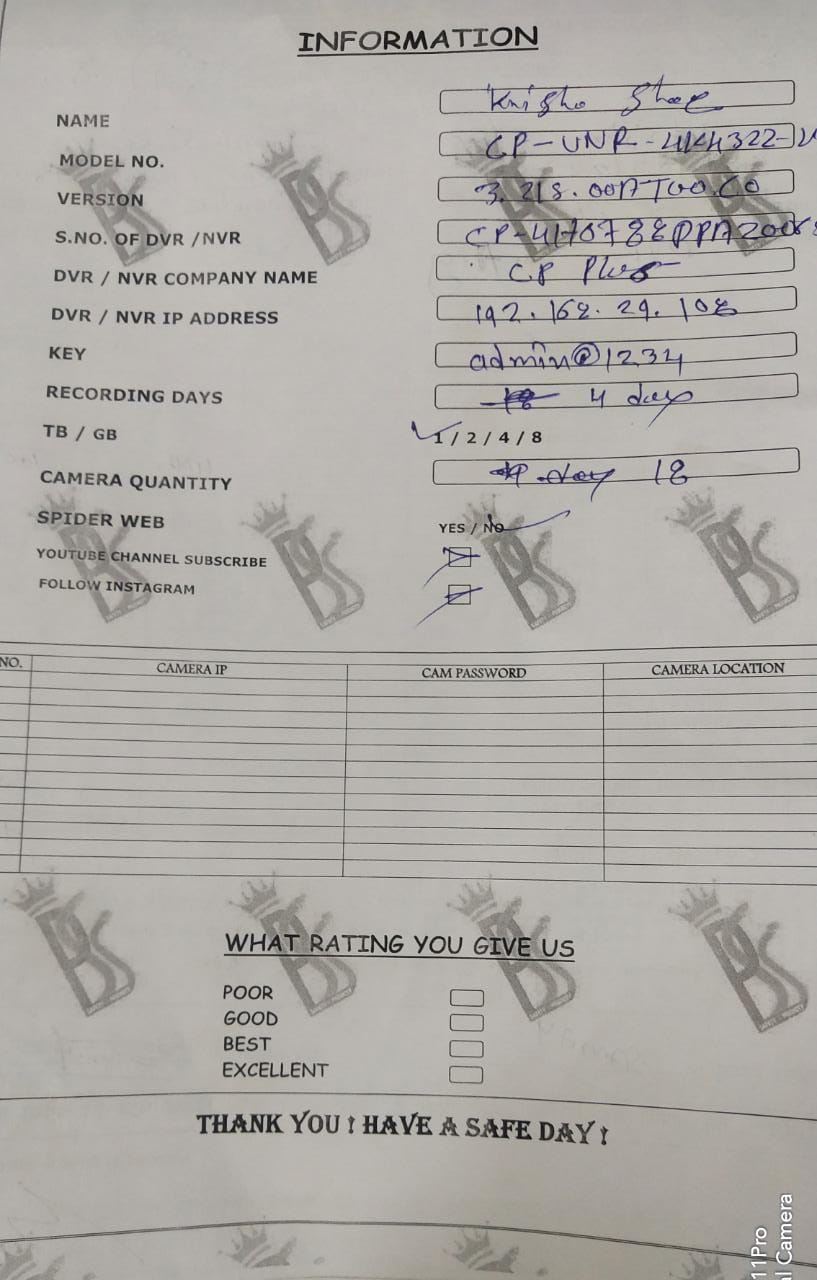 INFORMATION
NAME
MODEL NO. CP-UNR-4K4322-
VERSION 3.218.00AT00.C0
S.NO. OF DVR /NVR
DVR / NVR COMPANY NAME CP Plus
DVR / NVR IP ADDRESS 192.168.29.108
KEY admin@1234
RECORDING DAYS 4 days
TB / GB 1 / 2 / 4 / 8
CAMERA QUANTITY 18
SPIDER WEB YES / No
YOUTUBE CHANNEL SUBSCRIBE
FOLLOW INSTAGRAM
NO. CAMERA IP CAM PASSWORD CAMERA LOCATION
WHAT RATING YOU GIVE US
POOR
GOOD
BEST
EXCELLENT
THANK YOU ! HAVE A SAFE DAY !
11Pro
l Camera